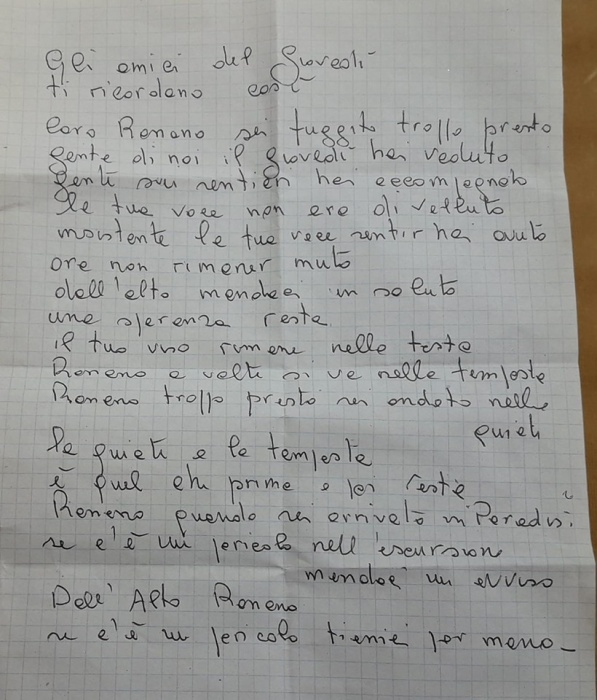 Gli amici del Giovedì
ti ricordano così
Caro Romano sei fuggito troppo presto
gente di noi il giovedì hai veduto
genti sui sentieri hai accompagnato
la tua voce non era di velluto
nonostante la tua voce sentir hai avuto
ora non rimaner muto
dall'alto mandaci un saluto
una speranza resta
il tuo viso rimane nella testa
Romano a volte si va nella tempesta
Romano troppo presto sei andato nella
quiete
la quiete e la tempesta
è quel che prima e poi resta
Romano quando sei arrivato in Paradiso
se c'è un pericolo nell'escursion
mandaci un avviso
Dall'Alto Romano
se c'è un pericolo tienici per mano